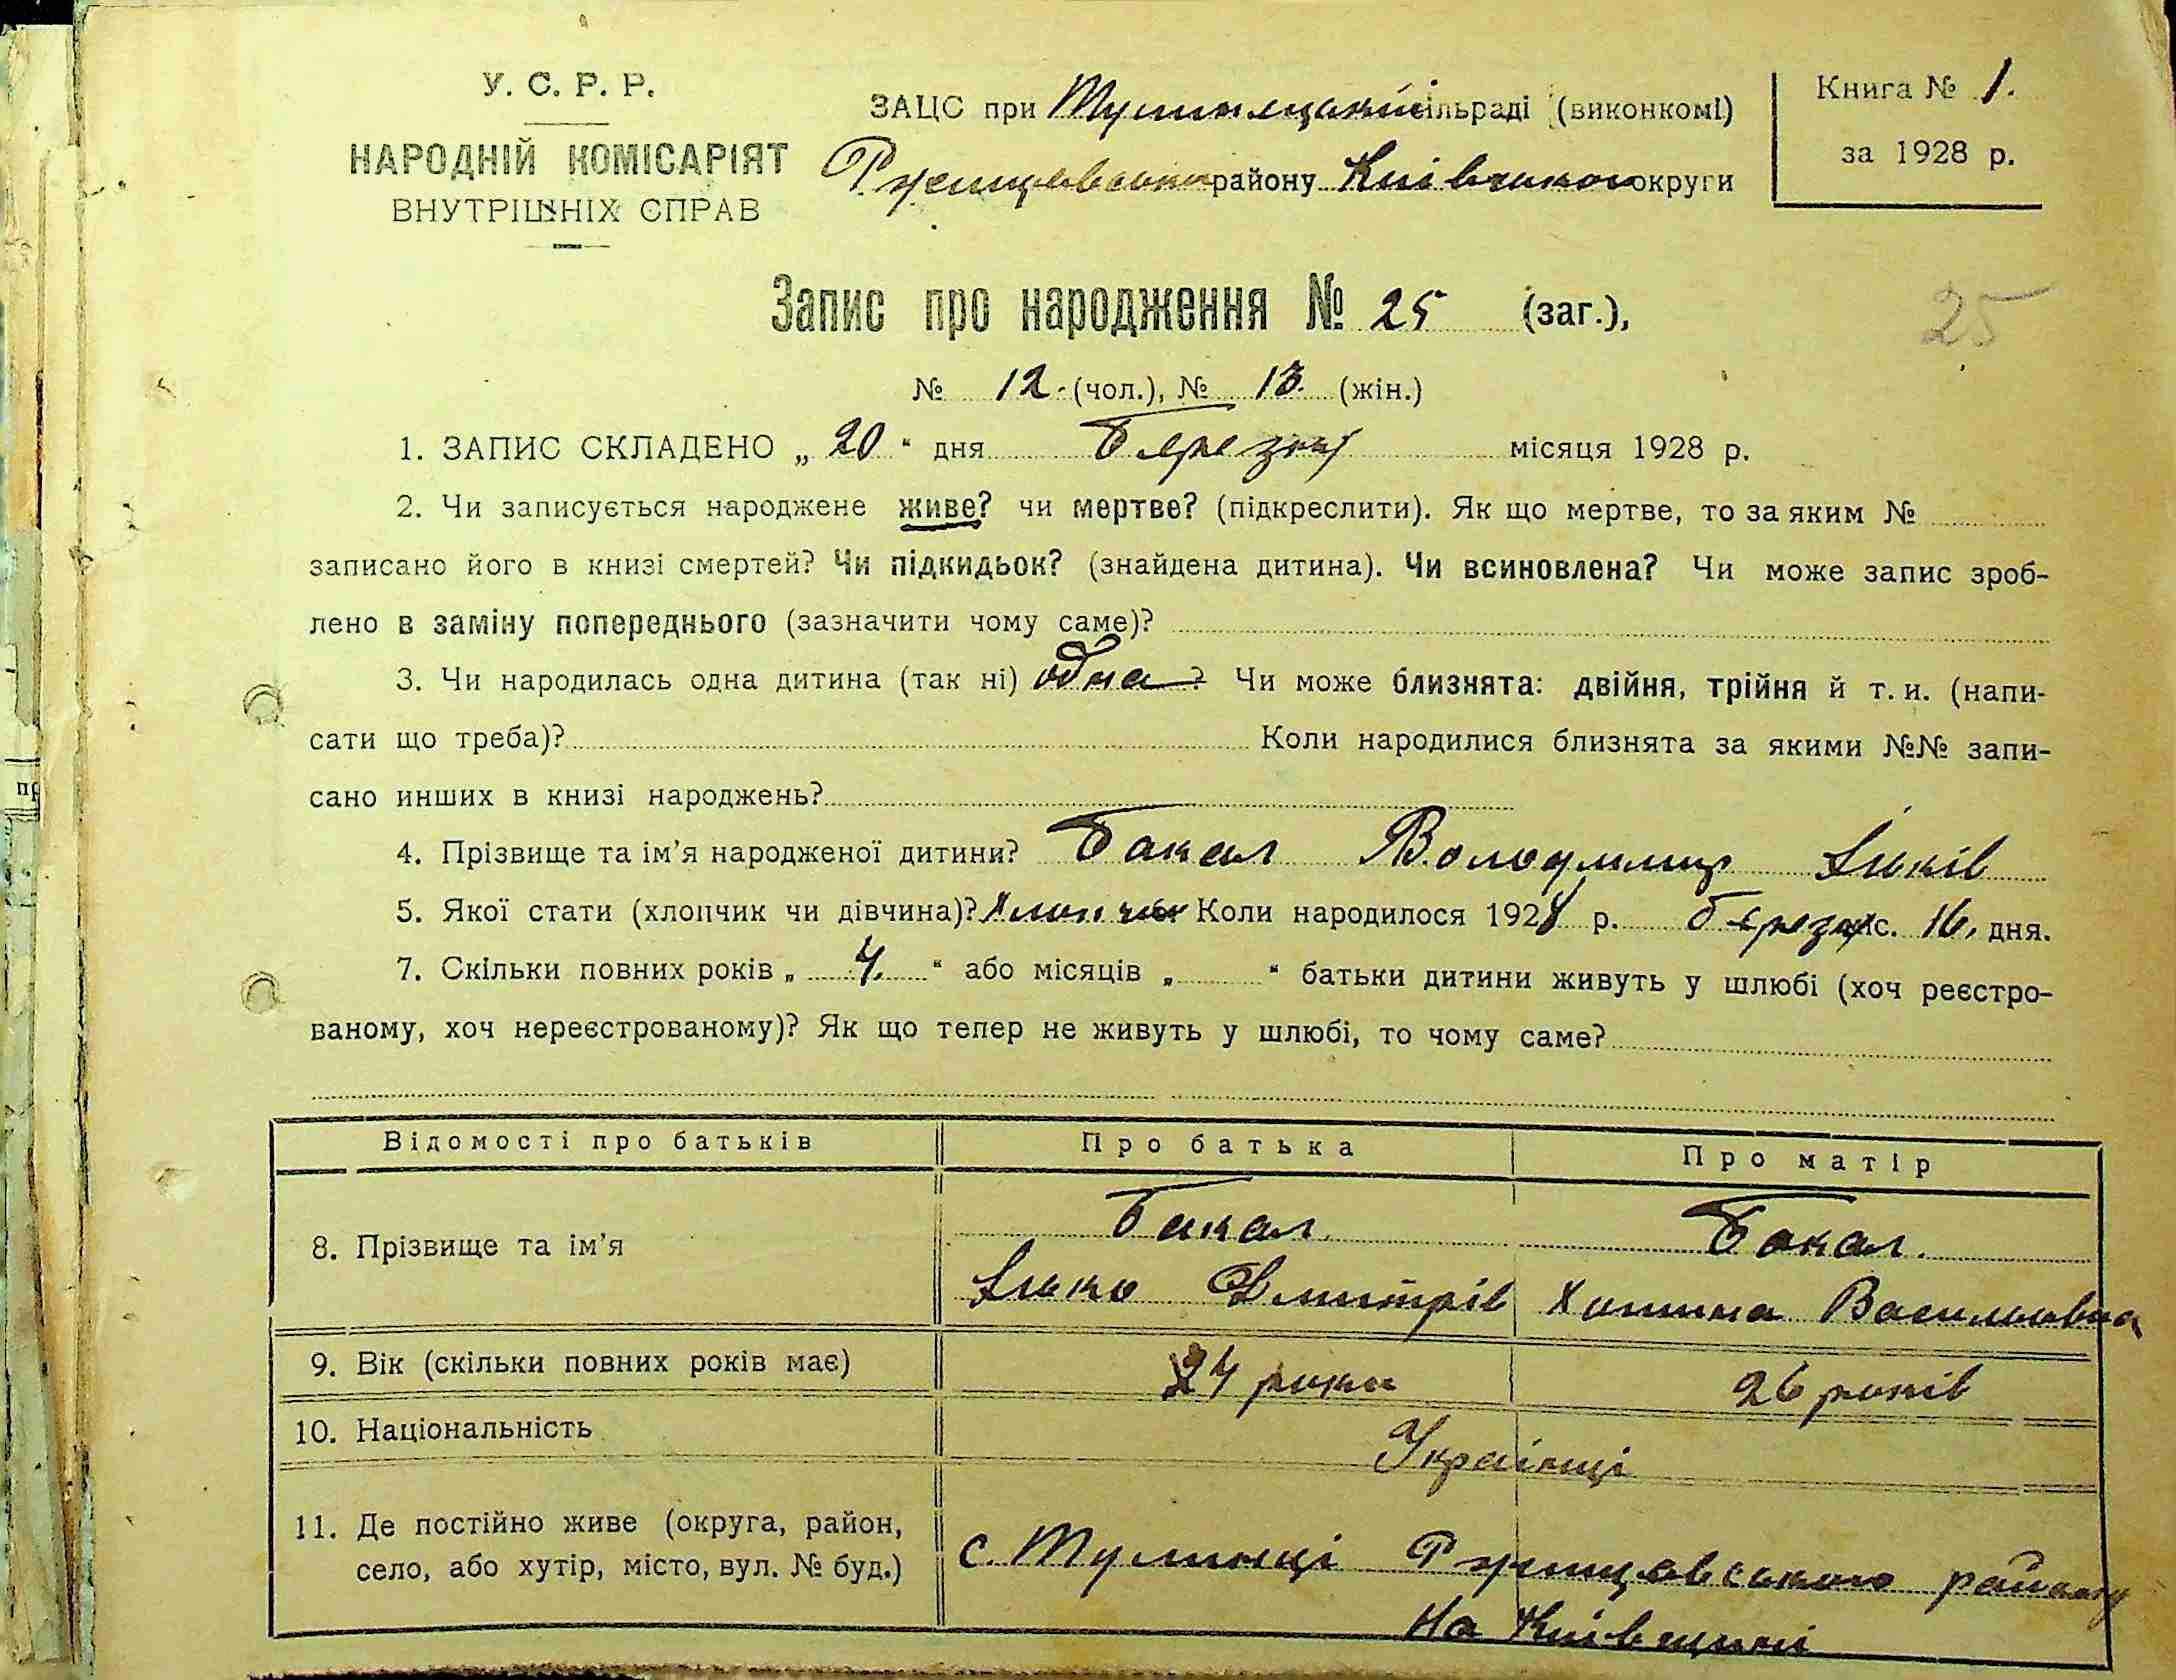 У. С. Р. Р.
НАРОДНІЙ КОМІСАРІЯТ
ВНУТРІШНІХ СПРАВ
ЗАЦС при Тулинецький сільраді (виконкомі)
району Київської округи
Книга № 1.
за 1928 р.
Запис про народження № 25 (заг.),
25
№ 12 (чол.), № 13 (жін.)
1. ЗАПИС СКЛАДЕНО „ 20 “ дня Березня місяця 1928 р.
2. Чи записується народжене живе? чи мертве? (підкреслити). Як що мертве, то за яким №
записано його в книзі смертей? Чи підкидьок? (знайдена дитина). Чи всиновлена? Чи може запис зроб-
лено в заміну попереднього (зазначити чому саме)?
3. Чи народилась одна дитина (так ні) одна ? Чи може близнята: двійня, трійня й т. и. (напи-
сати що треба)? Коли народилися близнята за якими №№ запи-
сано инших в книзі народжень?
4. Прізвище та ім’я народженої дитини? Бакал Володимир Ільків
5. Якої стати (хлопчик чи дівчина)? Хлопчик Коли народилося 1928 р. березня міс. 16, дня.
7. Скільки повних років „ 4. “ або місяців „ “ батьки дитини живуть у шлюбі (хоч реєстро-
ваному, хоч нереєстрованому)? Як що тепер не живуть у шлюбі, то чому саме?
Відомості про батьків Про батька Про матір
8. Прізвище та ім’я Бакал Бакал.
Ілько Дмитрів Химина Василівна
9. Вік (скільки повних років має) 24 роки 26 років
10. Національність Українці
11. Де постійно живе (округа, район,
село, або хутір, місто, вул. № буд.)
с. Тулинці Ржищевського району
на Київщині